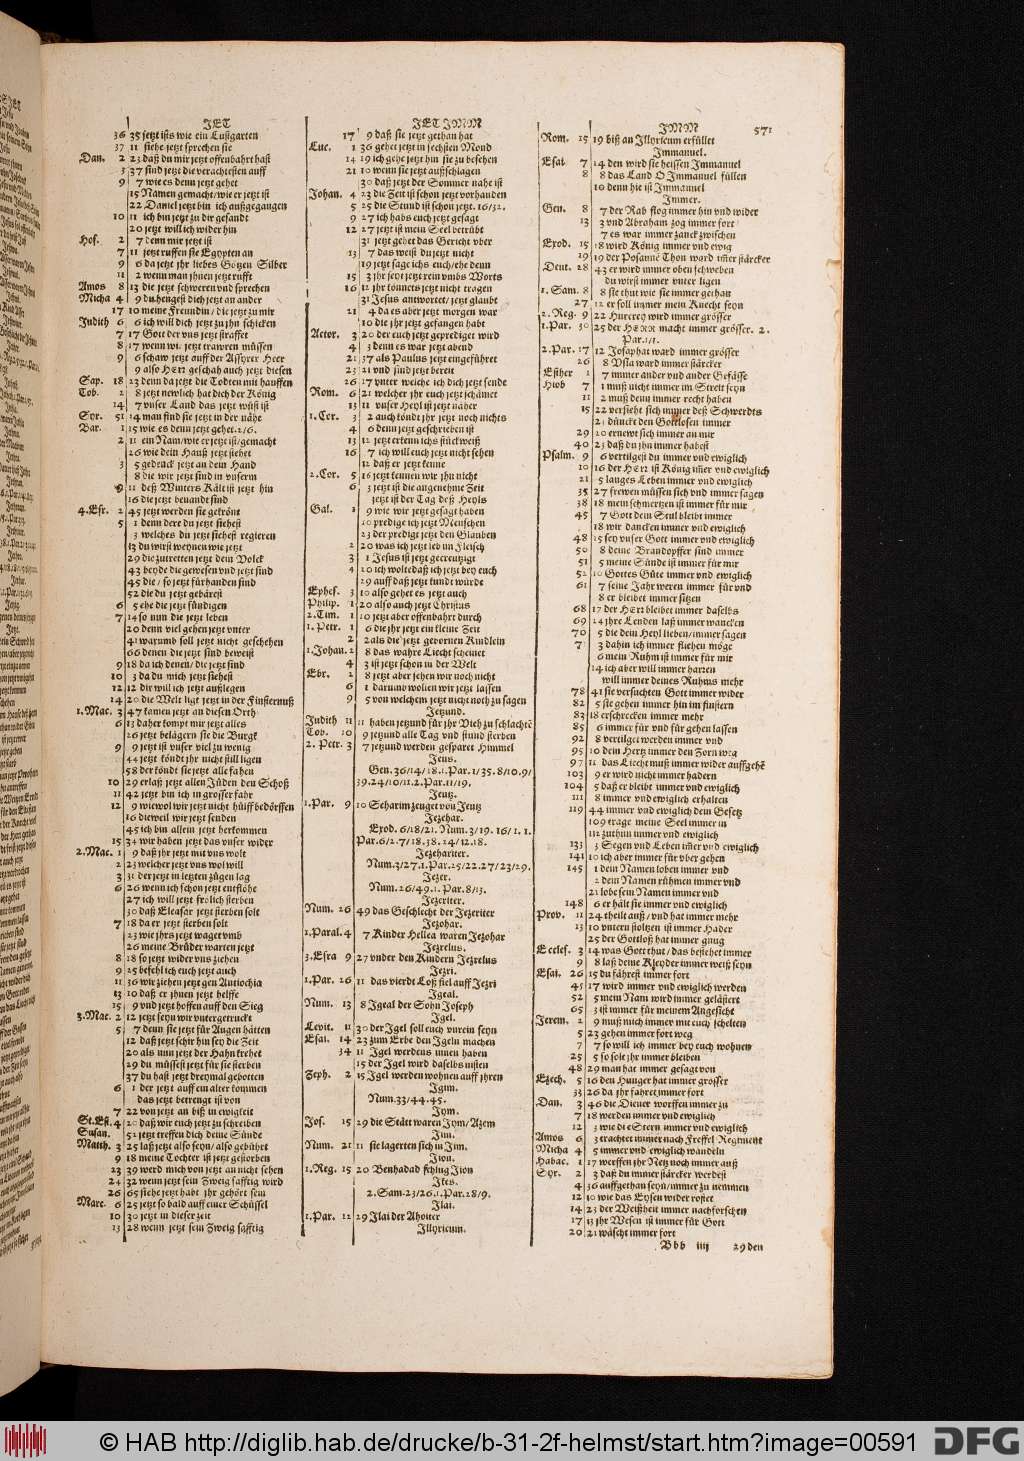 JET
36 35 jetzt ists wie ein Lustgarten
37 11 siehe jetzt sprechen sie
Dan. 2 23 daß du mir jetzt offenbahrt hast
3 37 sind jetzt die verachtesten auff
9 7 wie es denn jetzt gehet
15 Namen gemacht/wie er jetzt ist
22 Daniel jetzt bin ich außgegangen
10 11 ich bin jetzt zu dir gesandt
20 jetzt will ich wider hin
Hos. 2 7 denn mir jetzt ist
7 11 jetzt ruffen sie Egypten an
9 6 da jetzt jhr liebes Götzen Silber
11 2 wenn man jhnen jetzt rufft
Amos 8 13 die jetzt schweren und sprechen
Micha 4 9 du hengest dich jetzt an ander
17 10 meine Freundin/die jetzt zu mir
Judith 6 6 ich will dich jetzt zu jhn schicken
7 17 Gott der uns jetzt straffet
8 17 wenn wi. jetzt trawren müssen
9 6 schaw jetzt auff der Assyrer Heer
9 also HErr geschah auch jetzt diesen
Sap. 18 23 denn da jetzt die Todten mit hauffen
Tob. 2 8 jetzt newlich hat dich der König
14 7 unser Land das jetzt wüst ist
Syr. 51 34 man find sie jetzt in der nähe
Bar. 1 15 wie es denn jetzt gehet. 2/6.
2 11 ein Nam/wie er jetzt ist/gemacht
26 wie dein Hauß jetzt stehet
3 5 gedenck jetzt an dein Hand
8 die wir jetzt sind in unserm
9 11 deß Winters Kält ist jetzt hin
16 die jetzt benandt sind
4. Esr. 2 45 jetzt werden sie gekrönt
5 1 denn dere du jetzt siehest
3 welches du jetzt siehest regieren
13 du wirst weynen wie jetzt
29 die zutretten jetzt dem Volck
43 beyde die gewesen und jetzt sind
45 die/so jetzt fürhanden sind
52 die du jetzt gebärest
6 5 ehe die jetzt sündigen
7 14 so nun die jetzt leben
20 denn viel gehen jetzt unter
41 warumb soll jetzt nicht geschehen
66 denen die jetzt sind beweist
9 18 da ich denen/die jetzt sind
10 3 da du mich jetzt siehest
12 12 dir will ich jetzt außlegen
14 20 die Welt ligt jetzt in der Finsternuß
1. Mac. 3 47 kamen jetzt an diesen Orth
6 13 daher kompt mir jetzt alles
26 jetzt belägern sie die Burgk
9 9 jetzt ist unser viel zu wenig
44 jetzt köndt jhr nicht still ligen
58 der köndt sie jetzt alle fahen
10 29 erlaß jetzt allen Jüden den Schoß
11 42 jetzt bin ich in grosser fahr
12 9 wiewol wir jetzt nicht hülff bedörffen
16 dieweil wir jetzt senden
45 ich bin allein jetzt herkommen
15 34 wir haben jetzt das unser wider
2. Mac. 1 9 daß jhr jetzt mit uns wolt
2 23 welcher jetzt uns wol will
3 31 der jetzt in letzten zügen lag
6 26 wenn ich schon jetzt entflöhe
27 ich will jetzt frölich sterben
30 daß Eleasar jetzt sterben solt
7 18 da er jetzt sterben solt
23 wie jhrs jetzt waget umb
26 meine Brüder warten jetzt
8 18 so jetzt wider uns ziehen
9 25 befehl ich euch jetzt auch
11 36 wir ziehen jetzt gen Antiochia
13 10 daß er jhnen jetzt helffe
15 9 und jetzt hoffen auff den Sieg
3. Mac. 2 12 jetzt seyn wir untergetruckt
5 7 denn sie jetzt für Augen hätten
12 daß jetzt schir hin sey die Zeit
20 als nun jetzt der Hahn krehet
29 du müssest jetzt für sie sterben
37 du hast jetzt dreymal gebotten
6 1 der jetzt auff ein alter kommen
das jetzt betrengt ist von
7 22 von jetzt an biß in ewigkeit
St. Est. 4 20 daß wir euch jetzt zu schreiben
Susan. 52 jetzt treffen dich deine Sünde
Matth. 3 25 laß jetzt also seyn/also gebührt
9 18 meine Tochter ist jetzt gestorben
23 39 werd mich von jetzt an nicht sehen
24 32 wenn jetzt sein Zweig safftig wird
26 65 siehe jetzt habt jhr gehört sein
Marc. 6 25 jetzt so bald auff einer Schüssel
10 30 jetzt in dieser zeit
13 28 wenn jetzt sein Zweig safftig
JET JMM
17 9 daß sie jetzt gethan hat
Luc. 1 36 gehet jetzt in sechsten Mond
14 19 ich gehe jetzt hin sie zu besehen
21 10 wenn sie jetzt außschlagen
30 daß jetzt der Sommer nahe ist
Johan. 4 23 die Zeit ist schon jetzt vorhanden
5 25 die Stund ist schon jetzt. 16/32.
9 27 ich habs euch jetzt gesagt
12 27 jetzt ist mein Seel betrübt
31 jetzt gehet das Gericht uber
13 7 das weist du jetzt nicht
19 jetzt sage ichs euch/ehe denn
15 3 jhr seyt jetzt rein umbs Worts
16 12 jhr könnets jetzt nicht tragen
31 Jesus antwortet/jetzt glaubt
21 4 da es aber jetzt morgen war
10 die jhr jetzt gefangen habt
Actor. 3 20 der euch jetzt geprediget wird
4 3 denn es war jetzt abend
21 37 als Paulus jetzt eingeführet
23 21 und sind jetzt bereit
26 17 unter welche ich dich jetzt sende
Rom. 6 21 welcher jhr euch jetzt schämet
13 11 unser Heyl ist jetzt näher
1. Cor. 3 2 auch köndt jhr jetzt noch nichts
4 6 denn jetzt geschrieben ist
13 12 jetzt erkenn ichs stückweiß
16 7 ich will euch jetzt nicht sehen
12 daß er jetzt keme
2. Cor. 5 16 jetzt kennen wir jhn nicht
6 2 jetzt ist die angenehme Zeit
jetzt ist der Tag deß Heyls
Gal. 1 9 wie wir jetzt gesagt haben
10 predige ich jetzt Menschen
23 der predigt jetzt den Glauben
2 20 was ich jetzt leb im Fleisch
3 1 Jesus ist jetzt gecreutzigt
4 20 ich wolte daß ich jetzt bey euch
29 auff daß jetzt kund würde
Ephes. 3 10 also gehet es jetzt auch
Philip. 1 20 also auch jetzt Christus
2. Tim. 1 10 jetzt aber offenbahrt durch
1. Petr. 1 6 die jhr jetzt ein kleine Zeit
2 2 als die jetzt gebornen Kindlein
1. Johan. 2 8 das wahre Liecht scheinet
4 3 ist jetzt schon in der Welt
Ebr. 2 8 jetzt aber sehen wir noch nicht
6 1 darumb wollen wir jetzt lassen
9 5 von welchem jetzt nicht noch zu sagen
Jetzund.
Judith 11 11 haben jetzund für jhr Vieh zu schlachtē
Tob. 10 9 jetzund alle Tag und stund sterben
2. Petr. 3 7 jetzund werden gesparet Himmel
Jeus.
Gen. 36/14/18. 1. Par. 1/35. 8/10. 9/
39. 24/10/11. 2. Par. 11/19.
Jeutz.
1. Par. 9 10 Seharim zeuget von Jeutz
Jezehar.
Exod. 6/18/21. Num. 3/19. 16/1. 1.
Par. 6/2. 7/18. 38. 24/12. 18.
Jezehariter.
Num. 3/27. 1. Par. 25/22. 27/23/29.
Jezer.
Num. 26/49. 1. Par. 8/13.
Jezeriter.
Num. 26 49 das Geschlecht der Jezeriter
Jezohar.
1. Paral. 4 7 Kinder Hellea waren Jezohar
Jezrelus.
3. Esra 9 27 under den Kindern Jezrelus
Jezri.
1. Par. 26 11 das vierdt Loß fiel auff Jezri
Jgeal.
Num. 13 8 Jgeal der Sohn Joseph
Jgel.
Levit. 11 30 der Jgel soll euch unrein seyn
Esai. 14 23 zum Erbe den Jgeln machen
34 11 Jgel werdens innen haben
15 der Jgel wird daselbs nisten
Zeph. 2 15 Jgel werden wohnen auff jhren
Jgim.
Num. 33/44. 45.
Jym.
Jos. 15 29 die Stätt waren Jym/Azem
Jim.
Num. 21 11 sie lagerten sich in Jim.
Jion.
1. Reg. 15 20 Benhadad schlug Jion
Jkes.
2. Sam. 23/26. 1. Par. 28/9.
Jlai.
1. Par. 12 29 Jlai der Ahoiter
Jllyricum.
JMM 571
Rom. 15 19 biß an Jllyricum erfüllet
Jmmanuel.
Esai. 7 14 den wird sie heissen Jmmanuel
8 8 das Land O Jmmanuel füllen
10 denn hie ist Jmmanuel
Jmmer.
Gen. 8 7 der Rab flog immer hin und wider
13 3 und Abraham zog immer fort
7 es war immer zanck zwischen
Exod. 15 18 wird König immer und ewig
19 19 der Posaune Thon ward im̄er stärcker
Deut. 28 43 er wird immer oben schweben
du wirst immer unter ligen
1. Sam. 8 8 sie thut wie sie immer gethan
27 12 er soll immer mein Knecht seyn
2. Reg. 9 22 Hurerey wird immer grösser
1. Par. 30 25 der HERR macht immer grösser. 2.
Par. 1/1.
2. Par. 17 12 Josaphat ward immer grösser
26 8 Usia ward immer stärcker
Esther 1 7 immer ander und ander Gefässe
Hiob 7 1 muß nicht immer im Streit seyn
11 2 muß denn immer recht haben
15 22 versieht sich immer deß Schwerdts
21 dünckt den Gottlosen immer
29 20 ernewt sich immer an mir
40 23 daß du jhn immer habest
Psalm. 9 6 vertilgest du immer und ewiglich
10 16 der HErr ist König im̄er und ewiglich
21 5 langes Leben immer und ewiglich
35 27 frewen müssen sich und immer sagen
38 18 mein schmertzen ist immer für mir
45 7 Gott dein Stul bleibt immer
18 wir dancken immer und ewiglich
48 15 sey unser Gott immer und ewiglich
50 8 deine Brandopffer sind immer
51 5 meine Sünde ist immer für mir
52 10 Gottes Güte immer und ewiglich
61 7 seine Jahr weren immer für und
8 er bleibet immer sitzen
68 17 der HErr bleibet immer daselbs
69 24 jhre Lenden laß immer wancken
70 5 die dein Heyl lieben/immer sagen
71 3 dahin ich immer fliehen möge
6 mein Ruhm ist immer für mir
14 ich aber will immer harren
will immer deines Ruhms mehr
78 41 sie versuchten Gott immer wider
82 5 sie gehen immer im finstern
83 18 erschrecken immer mehr
85 6 immer für und für gehen lassen
92 8 vertilget werden immer und
95 10 dem Hertz immer den Zorn weg
97 11 das Liecht muß immer wider auffgehē
103 9 er wird nicht immer hadern
104 5 daß er bleibt immer und ewiglich
111 8 immer und ewiglich erhalten
119 44 immer und ewiglich dem Gesetz
109 trage meine Seel immer in
112 zuthun immer und ewiglich
133 3 Segen und Leben im̄er und ewiglich
141 10 ich aber immer für uber gehen
145 1 dein Namen loben immer und
2 dein Namen rühmen immer und
21 lobe sein Namen immer und
148 6 er hält sie immer und ewiglich
Prov. 11 24 theilt auß/und hat immer mehr
13 10 untern stoltzen ist immer Hader
25 der Gottloß hat immer gnug
Eccles. 3 14 was Gott thut/das bestehet immer
9 8 laß deine Kleyder immer weiß seyn
Esai. 26 15 du fährest immer fort
45 17 wird immer und ewiglich werden
52 5 mein Nam wird immer gelästert
65 3 ist immer für meinem Angesicht
Jerem. 2 9 muß mich immer mit euch schelten
5 23 gehen immer fort weg
7 7 so will ich immer bey euch wohnen
25 5 so solt jhr immer bleiben
48 29 man hat immer gesagt von
Ezech. 5 16 den Hunger hat immer grösser
33 26 da jhr fahret immer fort
Dan. 3 46 die Diener worffen immer zu
7 18 werden immer und ewiglich
12 3 wie die Stern immer und ewiglich
Amos 6 3 trachtet immer nach Freffel Regiment
Micha 4 5 immer und ewiglich wandeln
Habac. 1 17 werffen jhr Netz noch immer auß
Syr. 2 3 daß du immer stärcker werdest
4 36 auffgethan seyn/immer zu nemmen
12 10 wie das Eysen wider rostet
14 23 der Weißheit immer nachforschen
17 13 jhr Wesen ist immer für Gott
20 21 wäscht immer fort
Bbb iiij 29 den
© HAB http://diglib.hab.de/drucke/b-31-2f-helmst/start.htm?image=00591
DFG